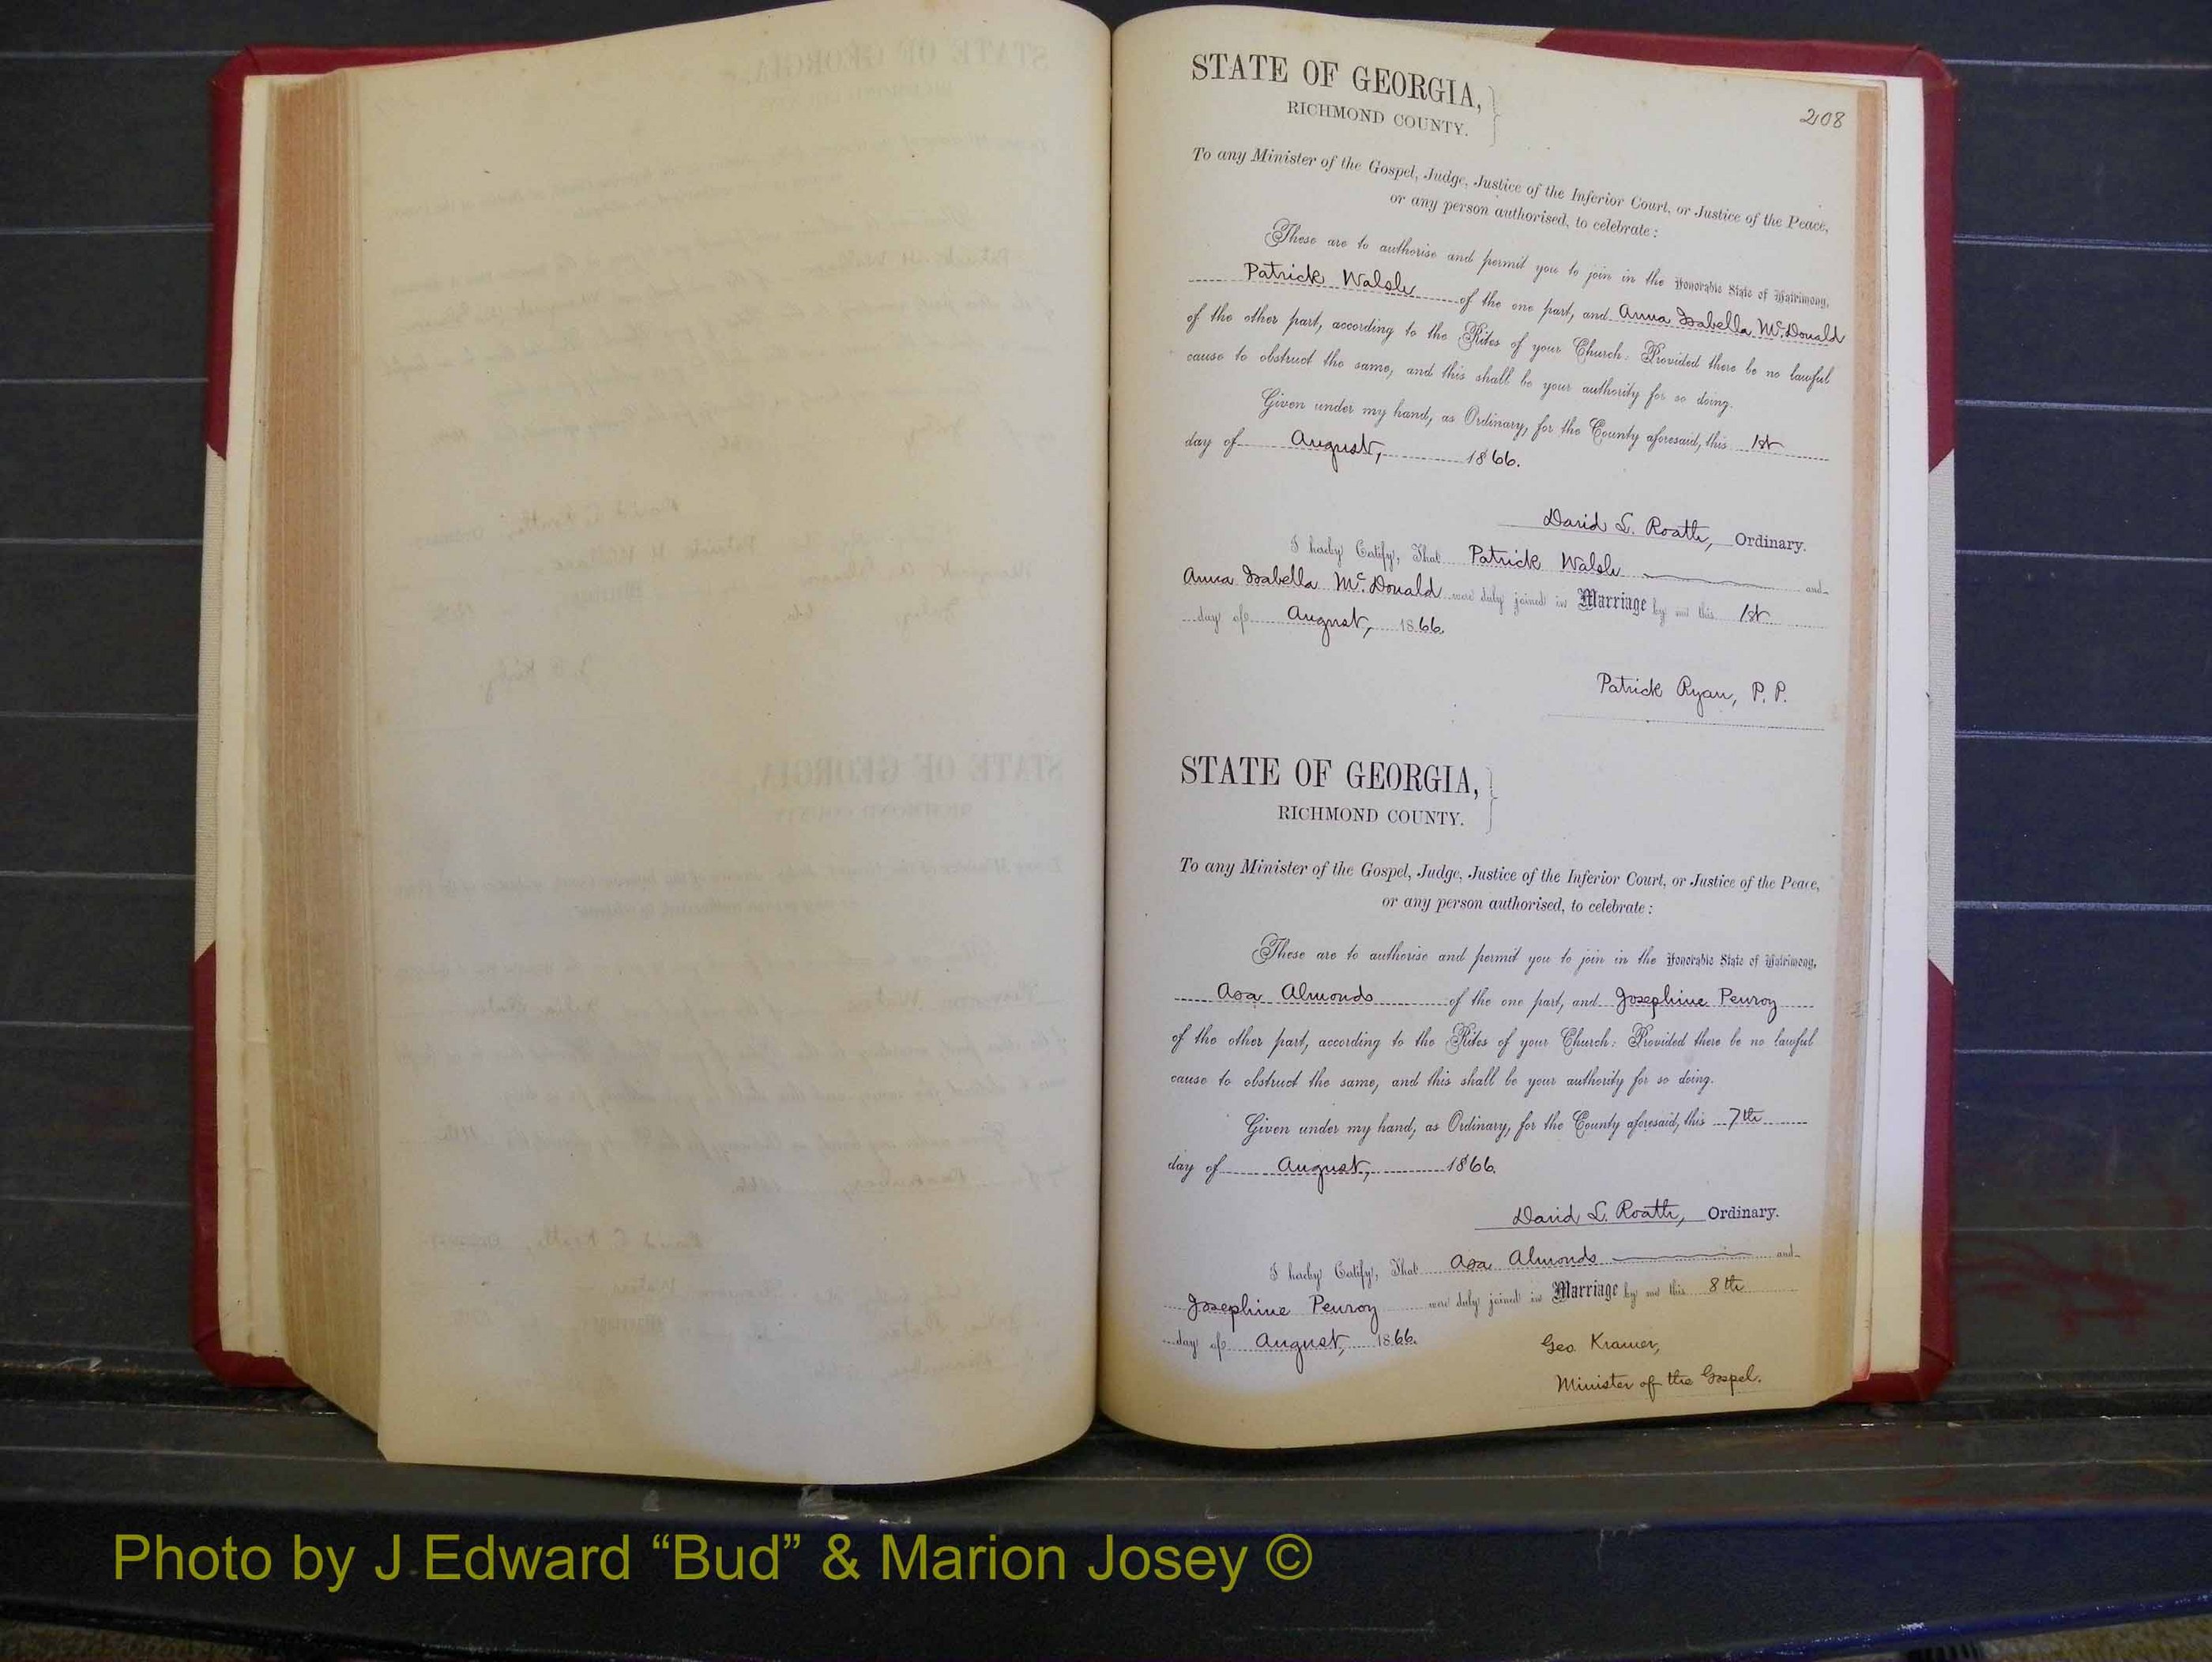 208
STATE OF GEORGIA,
RICHMOND COUNTY.
To any Minister of the Gospel, Judge, Justice of the Inferior Court, or Justice of the Peace,
or any person authorised, to celebrate:
These are to authorise and permit you to join in the Honorable State of Matrimony,
Patrick Walsh of the one part, and Anna Isabella McDonald
of the other part, according to the Rites of your Church: Provided there be no lawful
cause to obstruct the same, and this shall be your authority for so doing.
Given under my hand, as Ordinary, for the County aforesaid, this 1st
day of August, 1866.
David L. Roath, Ordinary.
I hereby Certify, That Patrick Walsh and
Anna Isabella McDonald were duly joined in Marriage by me this 1st
day of August, 1866.
Patrick Ryan, P. P.
STATE OF GEORGIA,
RICHMOND COUNTY.
To any Minister of the Gospel, Judge, Justice of the Inferior Court, or Justice of the Peace,
or any person authorised, to celebrate:
These are to authorise and permit you to join in the Honorable State of Matrimony,
Asa Almonds of the one part, and Josephine Penroy
of the other part, according to the Rites of your Church: Provided there be no lawful
cause to obstruct the same, and this shall be your authority for so doing.
Given under my hand, as Ordinary, for the County aforesaid, this 7th
day of August, 1866.
David L. Roath, Ordinary.
I hereby Certify, That Asa Almonds and
Josephine Penroy were duly joined in Marriage by me this 8th
day of August, 1866.
Geo Kramer,
Minister of the Gospel.
Photo by J Edward “Bud” & Marion Josey ©